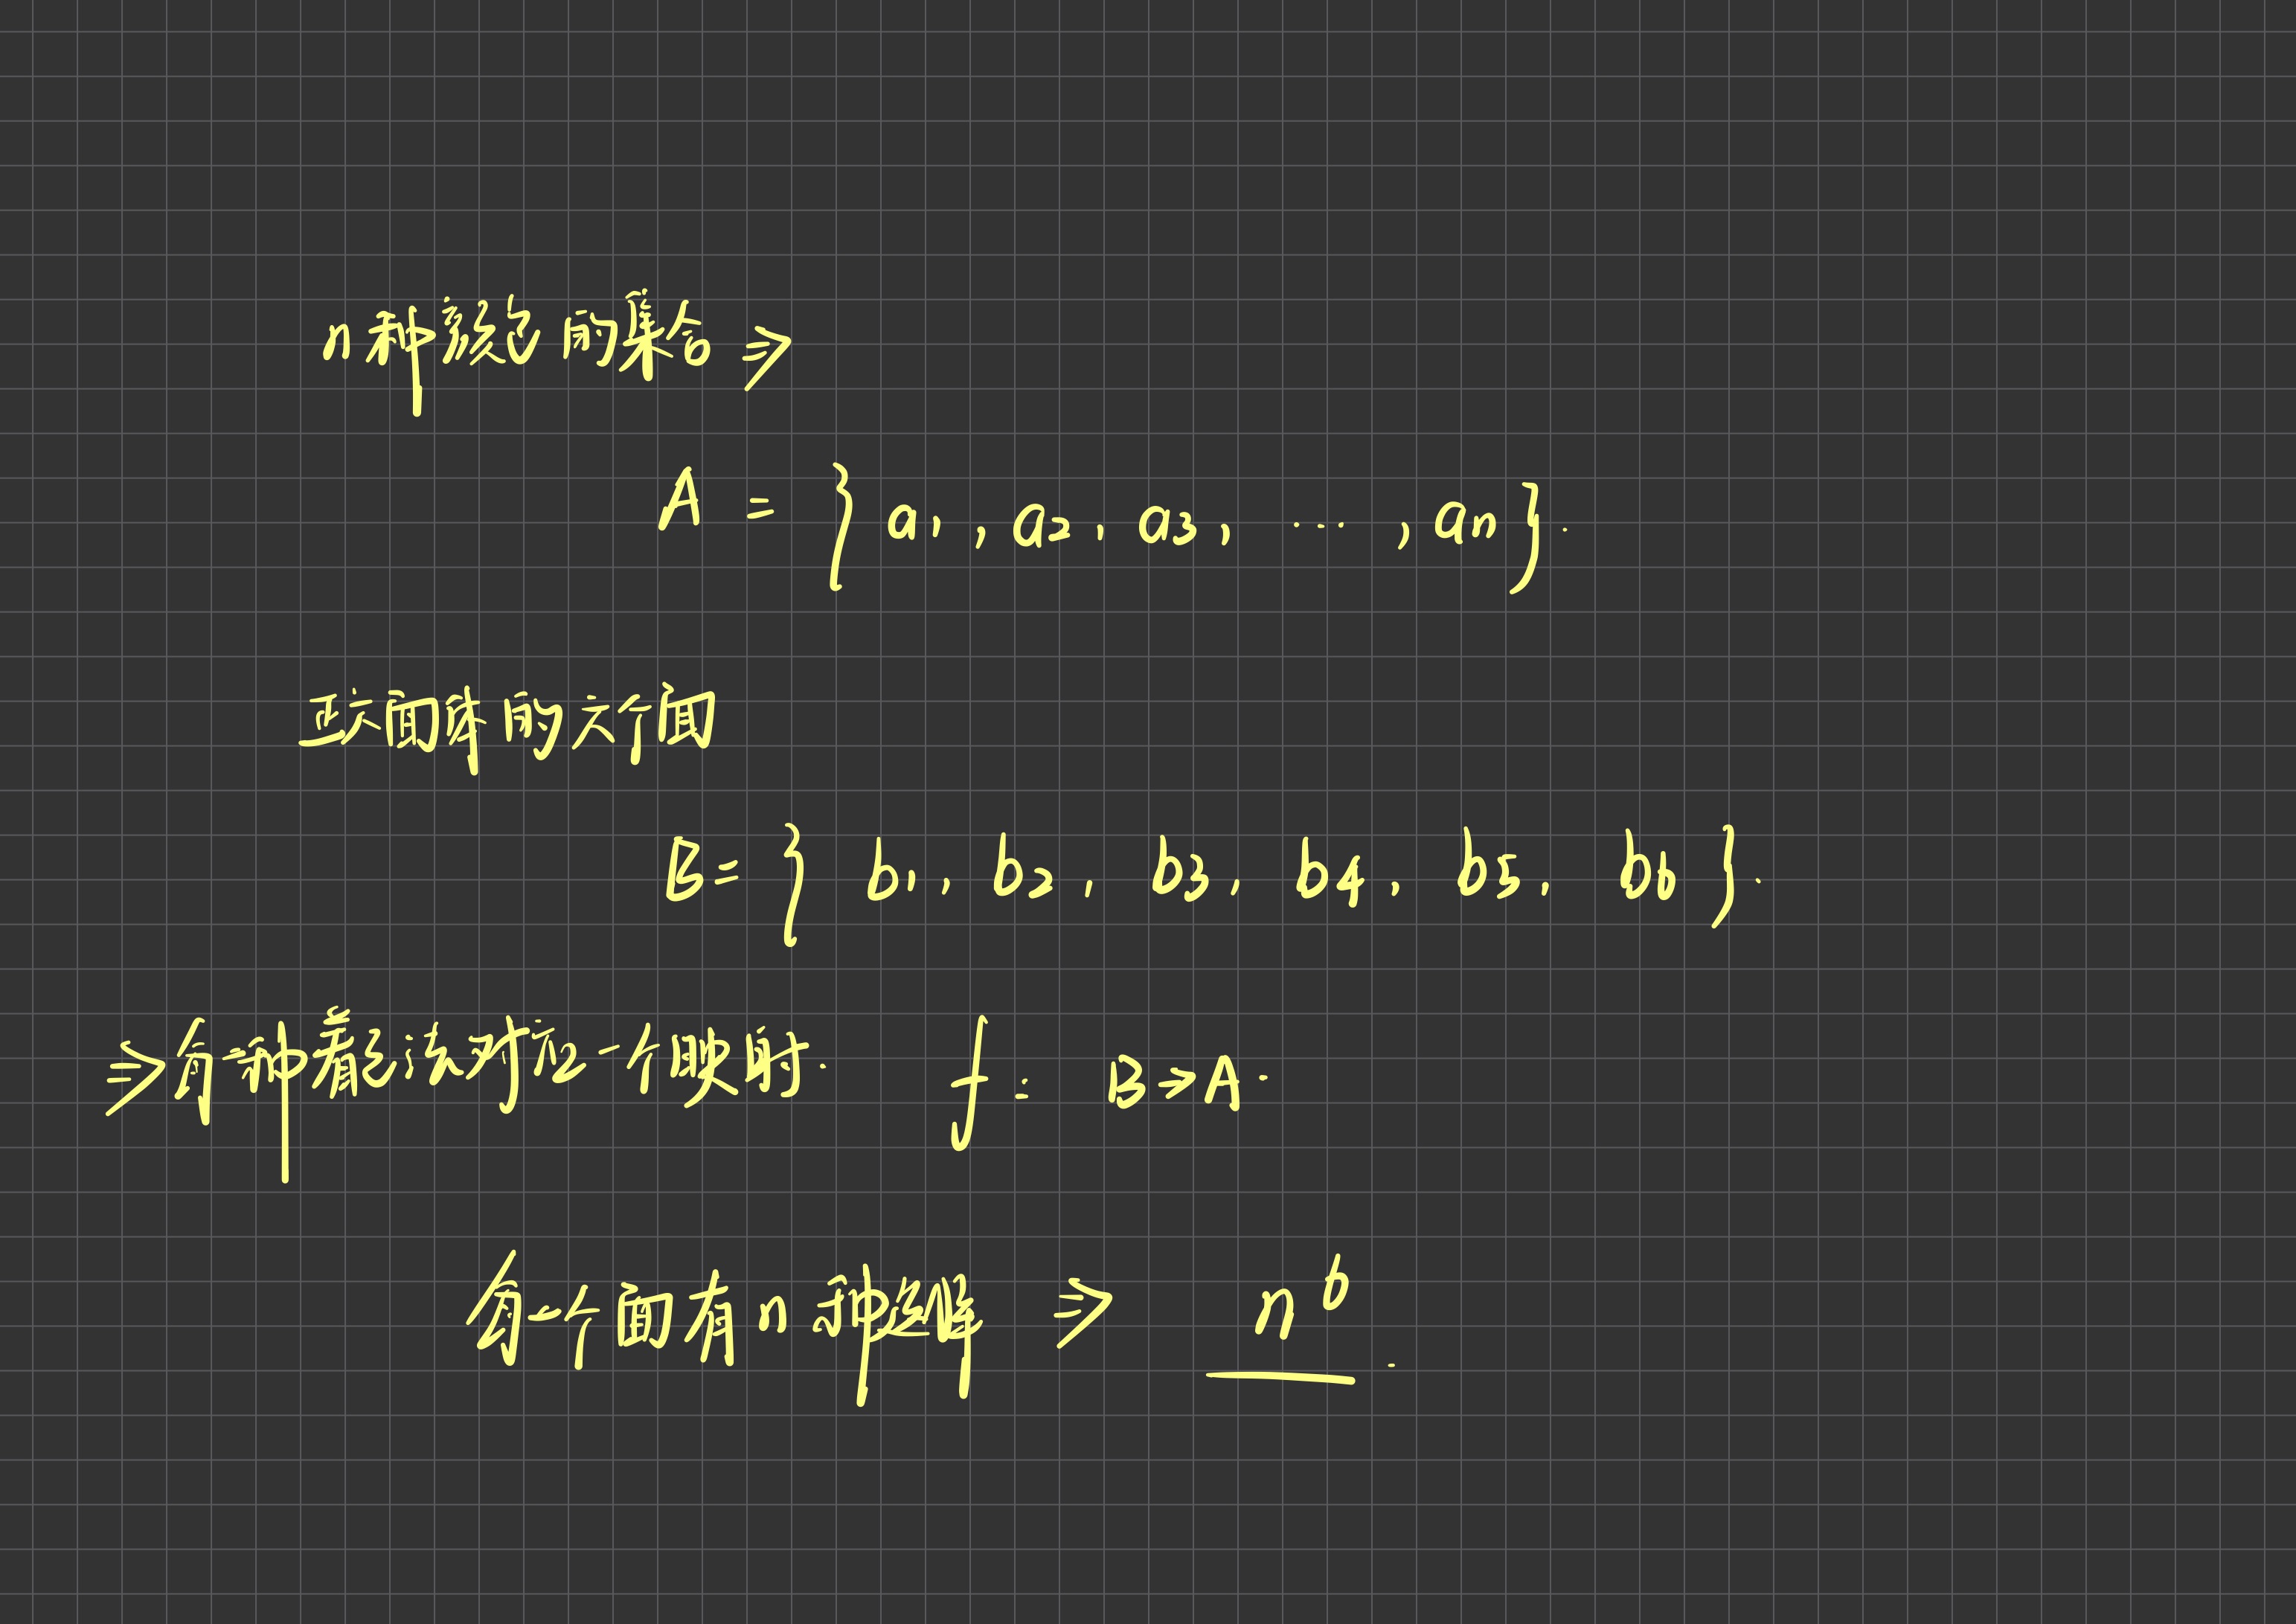 n种颜色的集合 ⇒
A = { a1, a2, a3, ..., an }.
正六面体的六个面
B = { b1, b2, b3, b4, b5, b6 }.
⇒ 每一种着色法对应一个映射. f: B → A.
每一个面有 n 种选择 ⇒ n^6.